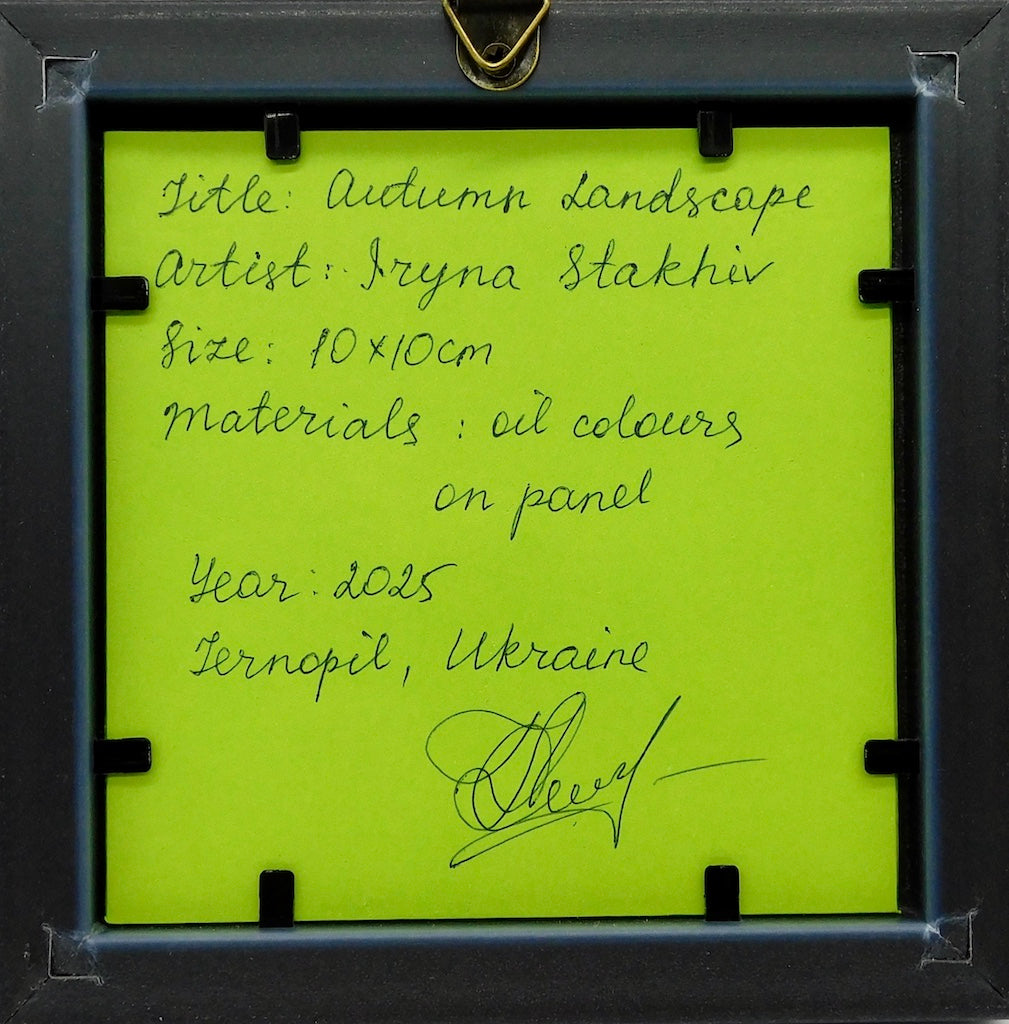 Title: Autumn Landscape
Artist: Iryna Stakhiv
Size: 10x10cm
Materials: oil colours
on panel
Year: 2025
Ternopil, Ukraine